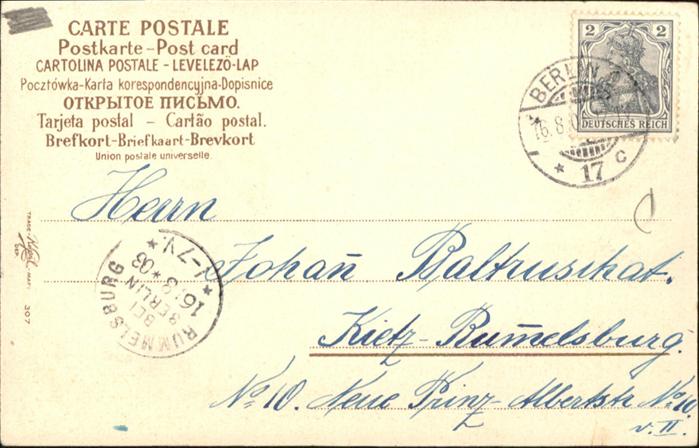 CARTE POSTALE
Postkarte – Post card
CARTOLINA POSTALE – LEVELEZŐ-LAP
Pocztówka-Karta korespondencyjna-Dopisnice
ОТКРЫТОЕ ПИСЬМО.
Tarjeta postal – Cartão postal.
Brefkort-Briefkaart-Brevkort
Union postale universelle.
2 2
DEUTSCHES REICH
BERLIN
16.8.
* 17 c
Herrn
Johan̄ Baltruschat.
Kietz-Rum̄elsburg.
No 10. Neue Prinz-Albertstr No 10
v. II.
RUMMELSBURG
BEI
BERLIN
16/8*03
*7-7V.*
TRADE
MARK
307